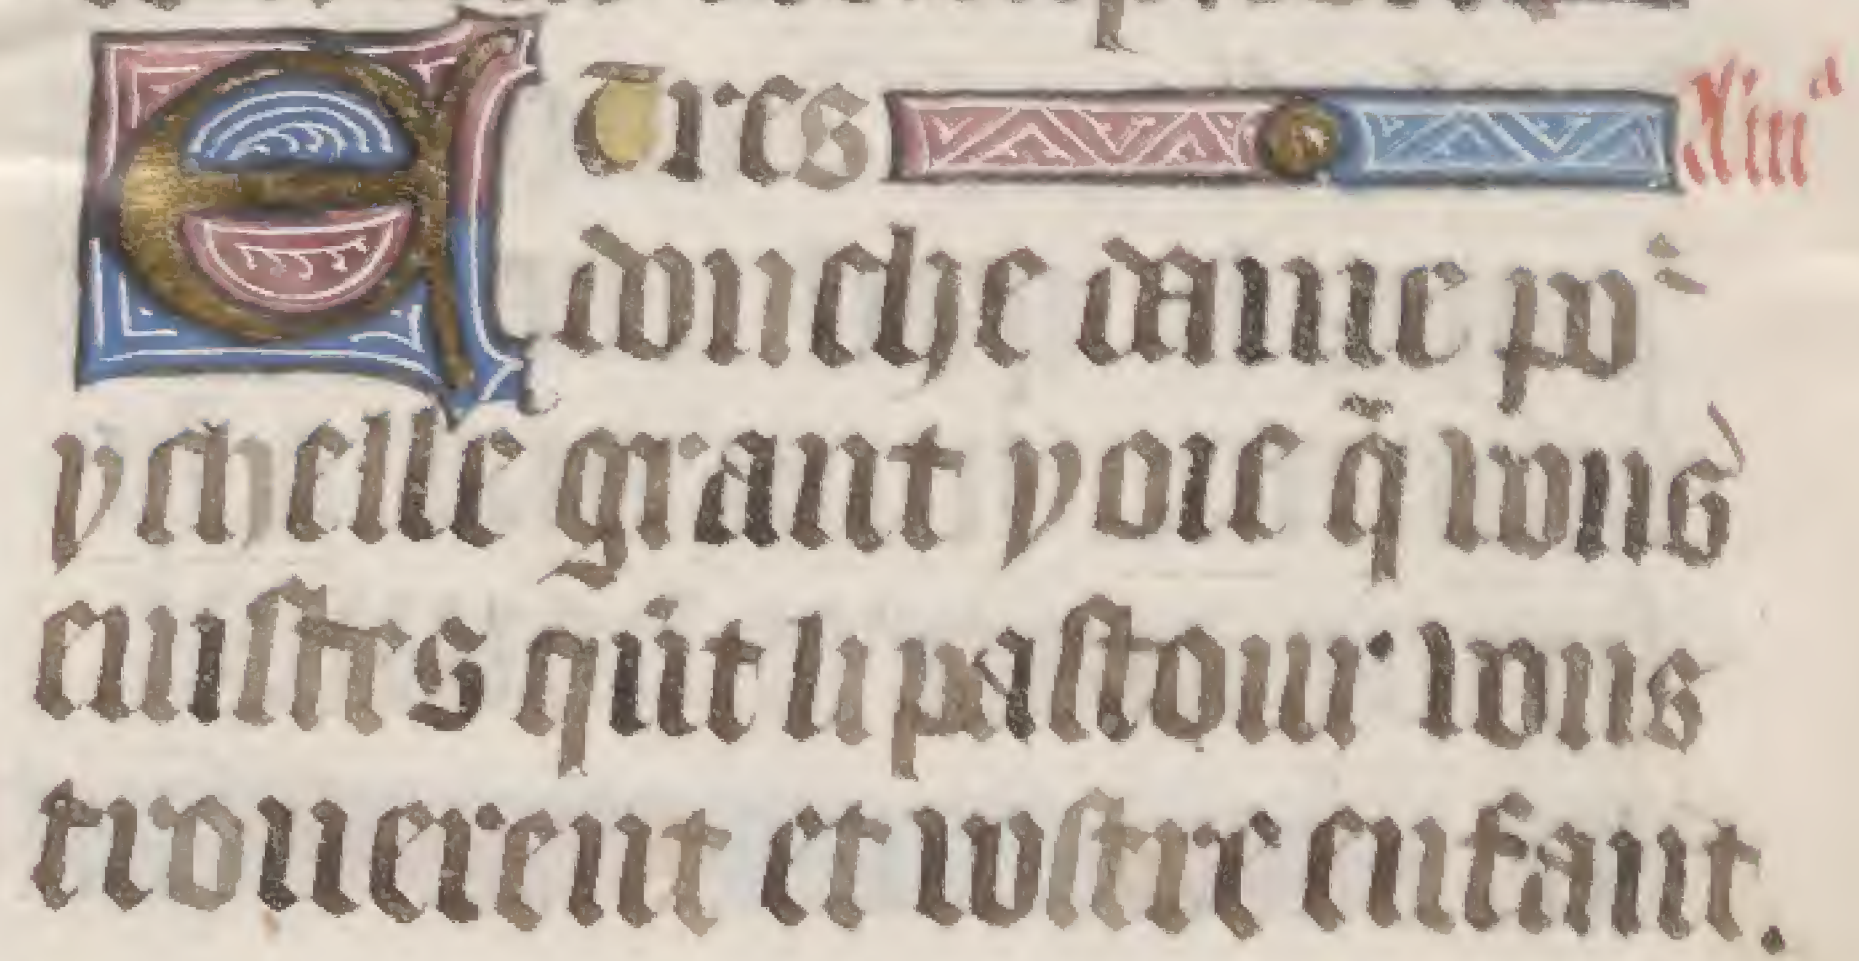 E Tres
douche dame poᵘ
ychelle grant yoie q̄ vous
euistres qᵃnt li pastour vous
trouuerent et vostre enfant.